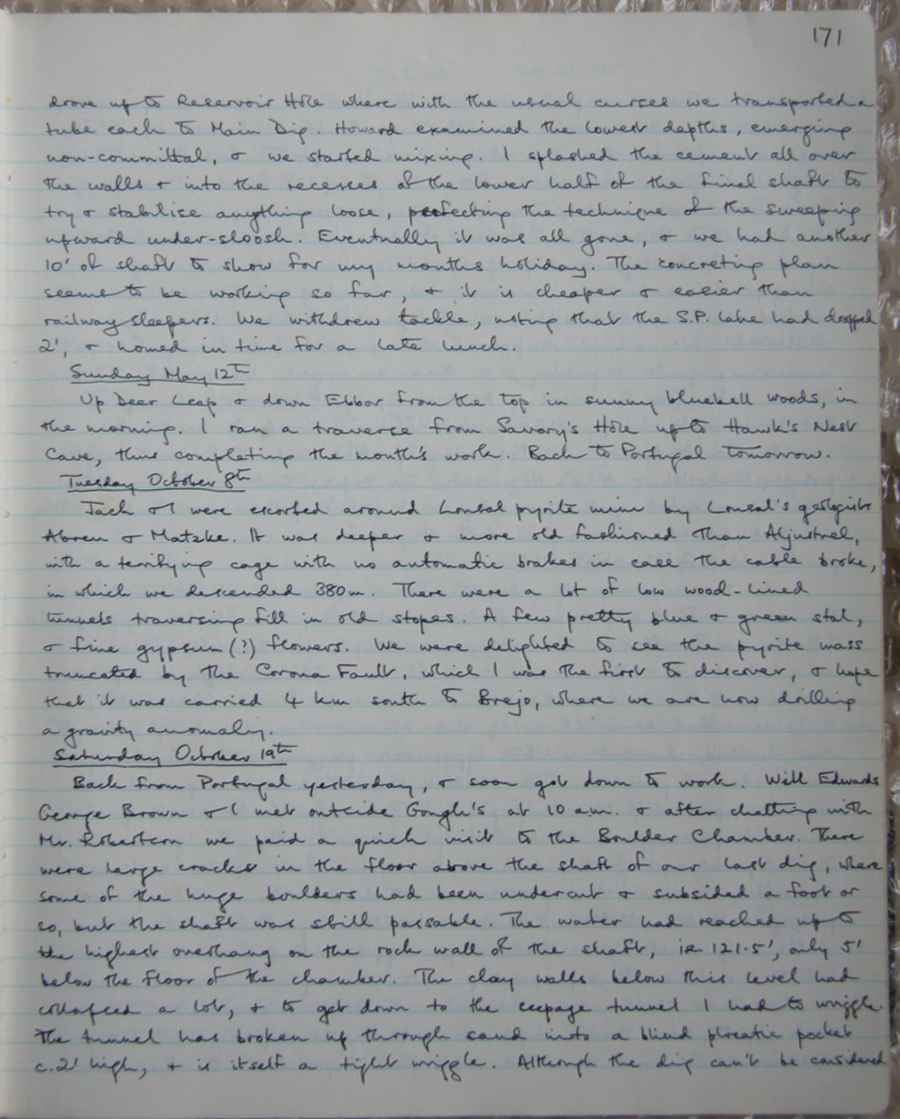 171
drove up to Reservoir Hole where with the usual curses we transported a
tube each to Main Dig. Howard examined the lowest depths, emerging
non-committal, & we started mixing. I splashed the cement all over
the walls & into the recesses of the lower half of the final shaft to
try & stabilise anything loose, perfecting the technique of the sweeping
upward under-sloosh. Eventually it was all gone, & we had another
10' of shaft to show for my months holiday. The concreting plan
seems to be working so far, & it is cheaper & easier than
railway sleepers. We withdrew tackle, noting that the S.P. lake had dropped
2', & homed in time for a late lunch.
Sunday May 12th
Up Deer Leap & down Ebbor from the top in sunny bluebell woods, in
the morning. I ran a traverse from Savory's Hole up to Hawk's Nest
Cave, thus completing the month's work. Back to Portugal tomorrow.
Tuesday October 8th
Jack & I were escorted around Lousal pyrite mine by Lousal's geologists
Abreu & Matzke. It was deeper & more old fashioned than Aljustrel,
with a terrifying cage with no automatic brakes in case the cable broke,
in which we descended 380m. There were a lot of low wood-lined
tunnels traversing fill in old stopes. A few pretty blue & green stal,
& fine gypsum (?) flowers. We were delighted to see the pyrite mass
truncated by the Corona Fault, which I was the first to discover, & hope
that it was carried 4 km south to Brejo, where we are now drilling
a gravity anomaly.
Saturday October 19th
Back from Portugal yesterday, & soon got down to work. Will Edwards
George Brown & I met outside Gough's at 10 am. & after chatting with
Mr. Robertson we paid a quick visit to the Boulder Chamber. There
were large cracks in the floor above the shaft of our last dig, where
some of the huge boulders had been undercut & subsided a foot or
so, but the shaft was still passable. The water had reached up to
the highest overhang on the rock wall of the shaft, ie 121.5', only 5'
below the floor of the chamber. The clay walls below this level had
collapsed a lot, & to get down to the seepage tunnel I had to wriggle.
The tunnel has broken up through sand into a blind phreatic pocket
c.2' high, & is itself a tight wriggle. Although the dig can't be considered